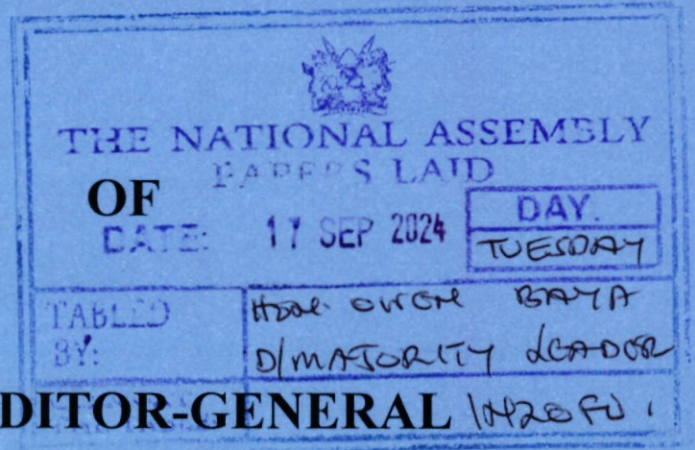 THE NATIONAL ASSEMBLY
PAPERS LAID
OF
DATE: 17 SEP 2024 DAY.
TUESDAY
TABLED BY: HON. OWEN BAYA
D/MAJORITY LEADER
DITOR-GENERAL